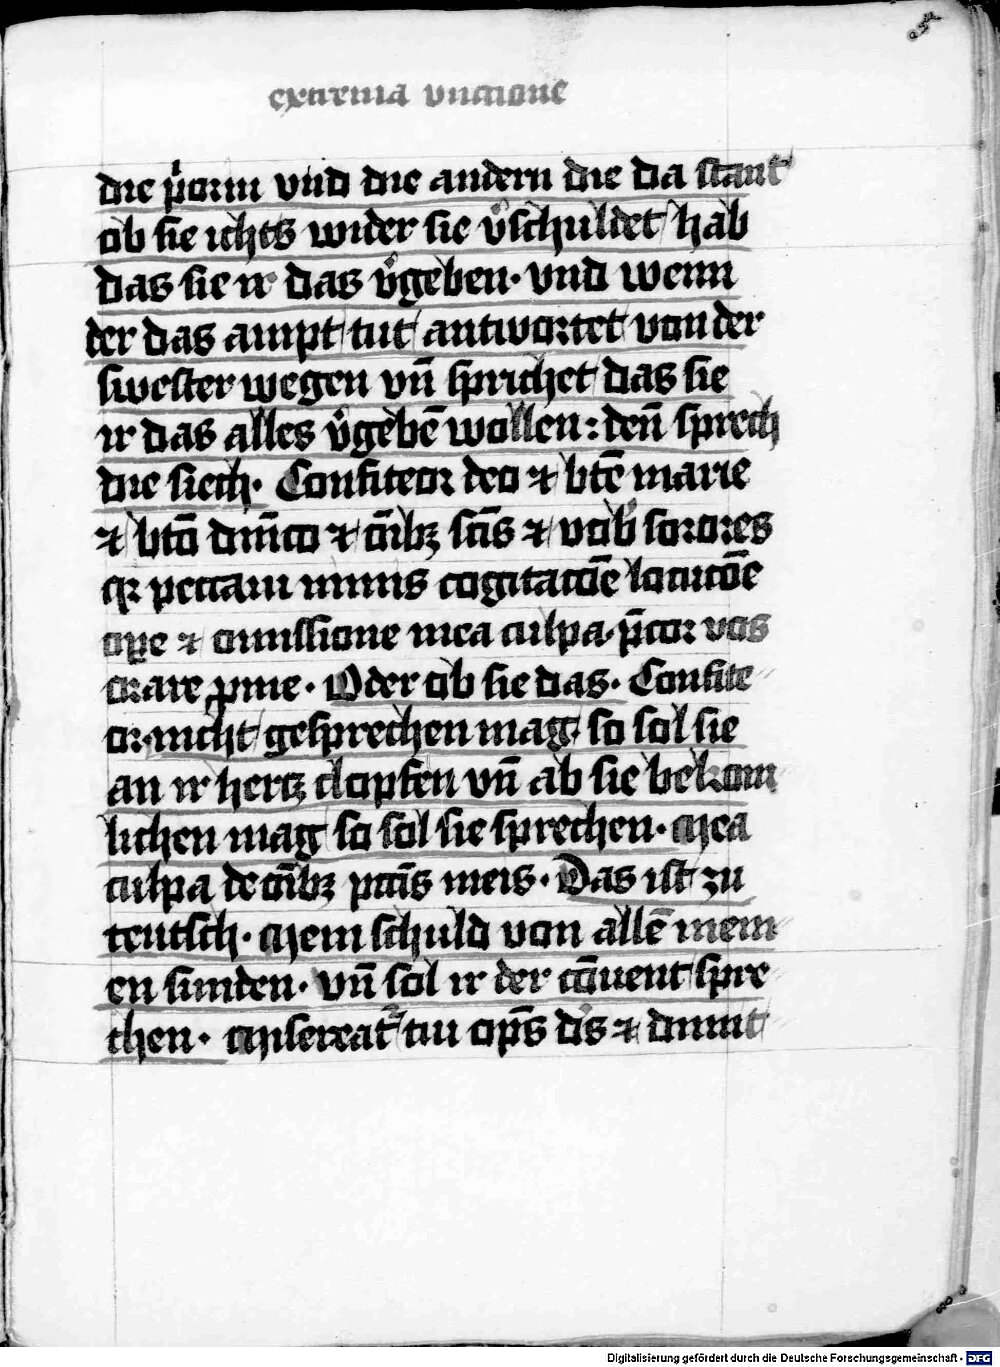 extrema vnctione
die p͛iorin vnd die andern die da stant
ob sie ichts wider sie v͛schuldet hab
das sie ir das v͛geben · vnd wenn
der das ampt tut antwortet von der
swester wegen vn̄ sprichet das sie
ir das alles v͛gebē wollen : den̄ sprech
die siech · Confiteor deo ⁊ btē marie
⁊ btō dnīco ⁊ oībꝫ scīs ⁊ vob͛ sorores
qꝛ peccaui nimis cogitatoē locutōe
oꝑe ⁊ omissione mea culpa · p̄cor vos
orare ꝓ me · Oder ob sie das · Confite
or · nicht gesprechen mag · so sol sie
an ir hertz clopfen vn̄ ab sie bekom
lichen mag so sol sie sprechen · Mea
culpa de oībꝫ pctīs meis · Das ist zu
teutsch · Mein schuld von allē mein
en sunden · vn̄ sol ir der cōuent spre
chen · Misereat͛ tui op̄s ds̄ ⁊ dimit
Digitalisierung gefördert durch die Deutsche Forschungsgemeinschaft · DFG